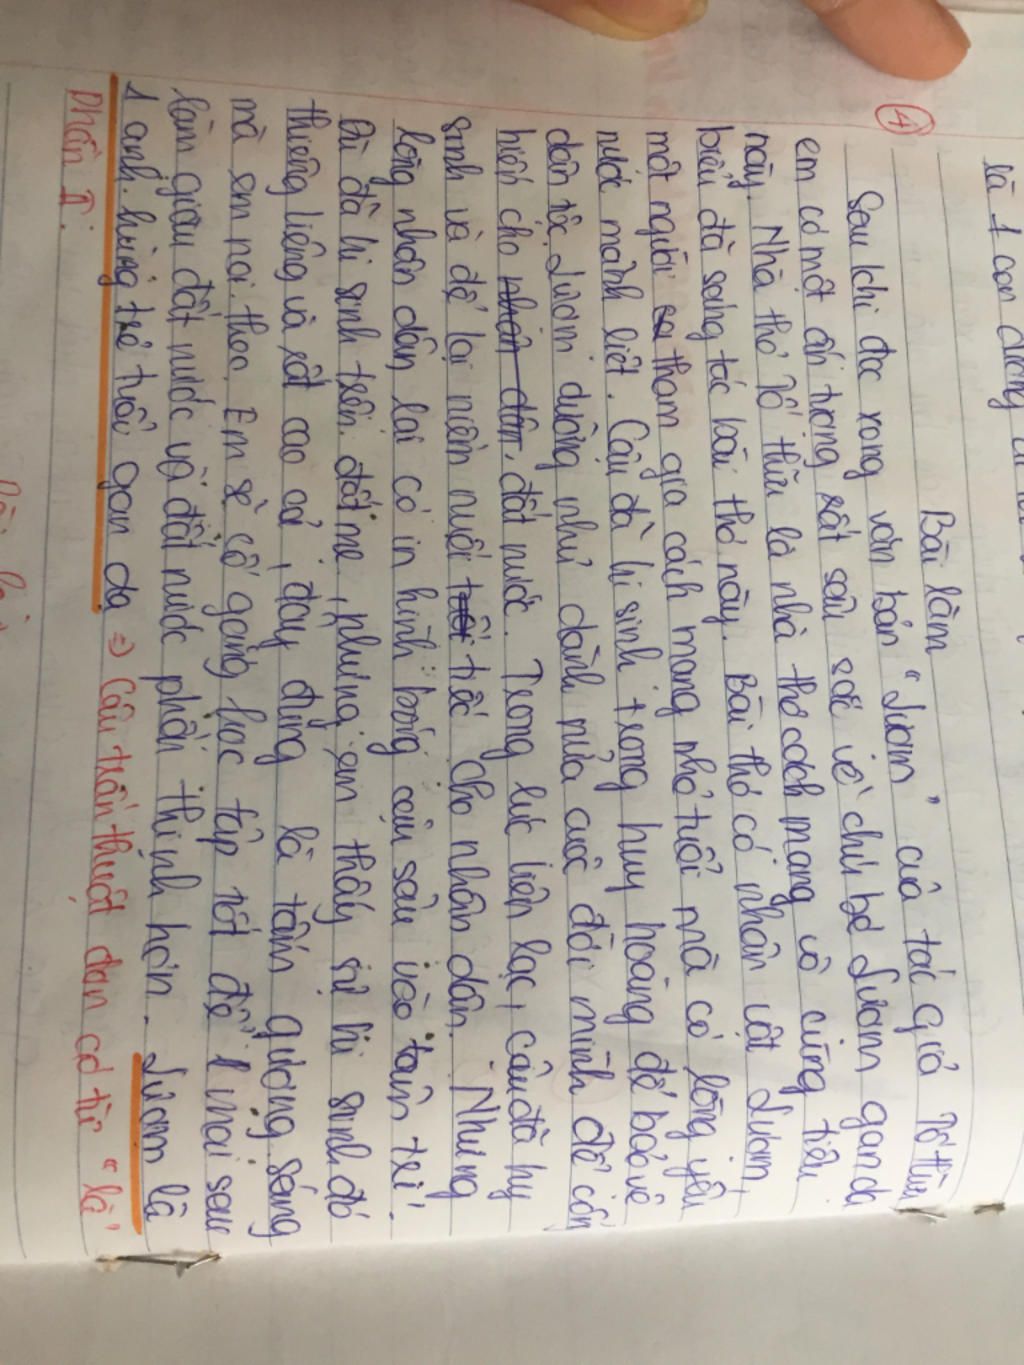 là 1 con đường
Bài làm
④
Sau khi đọc xong văn bản "Lượm" của tác giả Tố Hữu
em có một ấn tượng rất sâu sắc về chú bé Lượm gan dạ
này. Nhà thơ Tố Hữu là nhà thơ cách mạng vô cùng tiêu
biểu đã sáng tác bài thơ này. Bài thơ có nhân vật Lượm,
một người tham gia cách mạng nhỏ tuổi mà có lòng yêu
nước mãnh liệt. Cậu đã hi sinh trong huy hoàng để bảo vệ
dân tộc. Lượm dường như dành nửa cuộc đời mình để cốn
hiến cho nhân dân, đất nước. Trong lúc liên lạc, cậu đã hy
sinh và để lại niềm nuối tiếc cho nhân dân. Nhưng
lòng nhân dân lại có in hình bóng cậu sâu vào tâm trí.
Dù đã hi sinh trên đất mẹ, nhưng em thấy sự hi sinh đó
thiêng liêng và rất cao cả, đây đúng là tấm gương sáng
mà em noi theo. Em sẽ cố gắng học tập tốt để mai sau
làm giàu đất nước và đất nước phồn thịnh hơn. Lượm là
1 anh hùng trẻ tuổi gan dạ => Câu trần thuật đơn có từ "là"
Phần II: